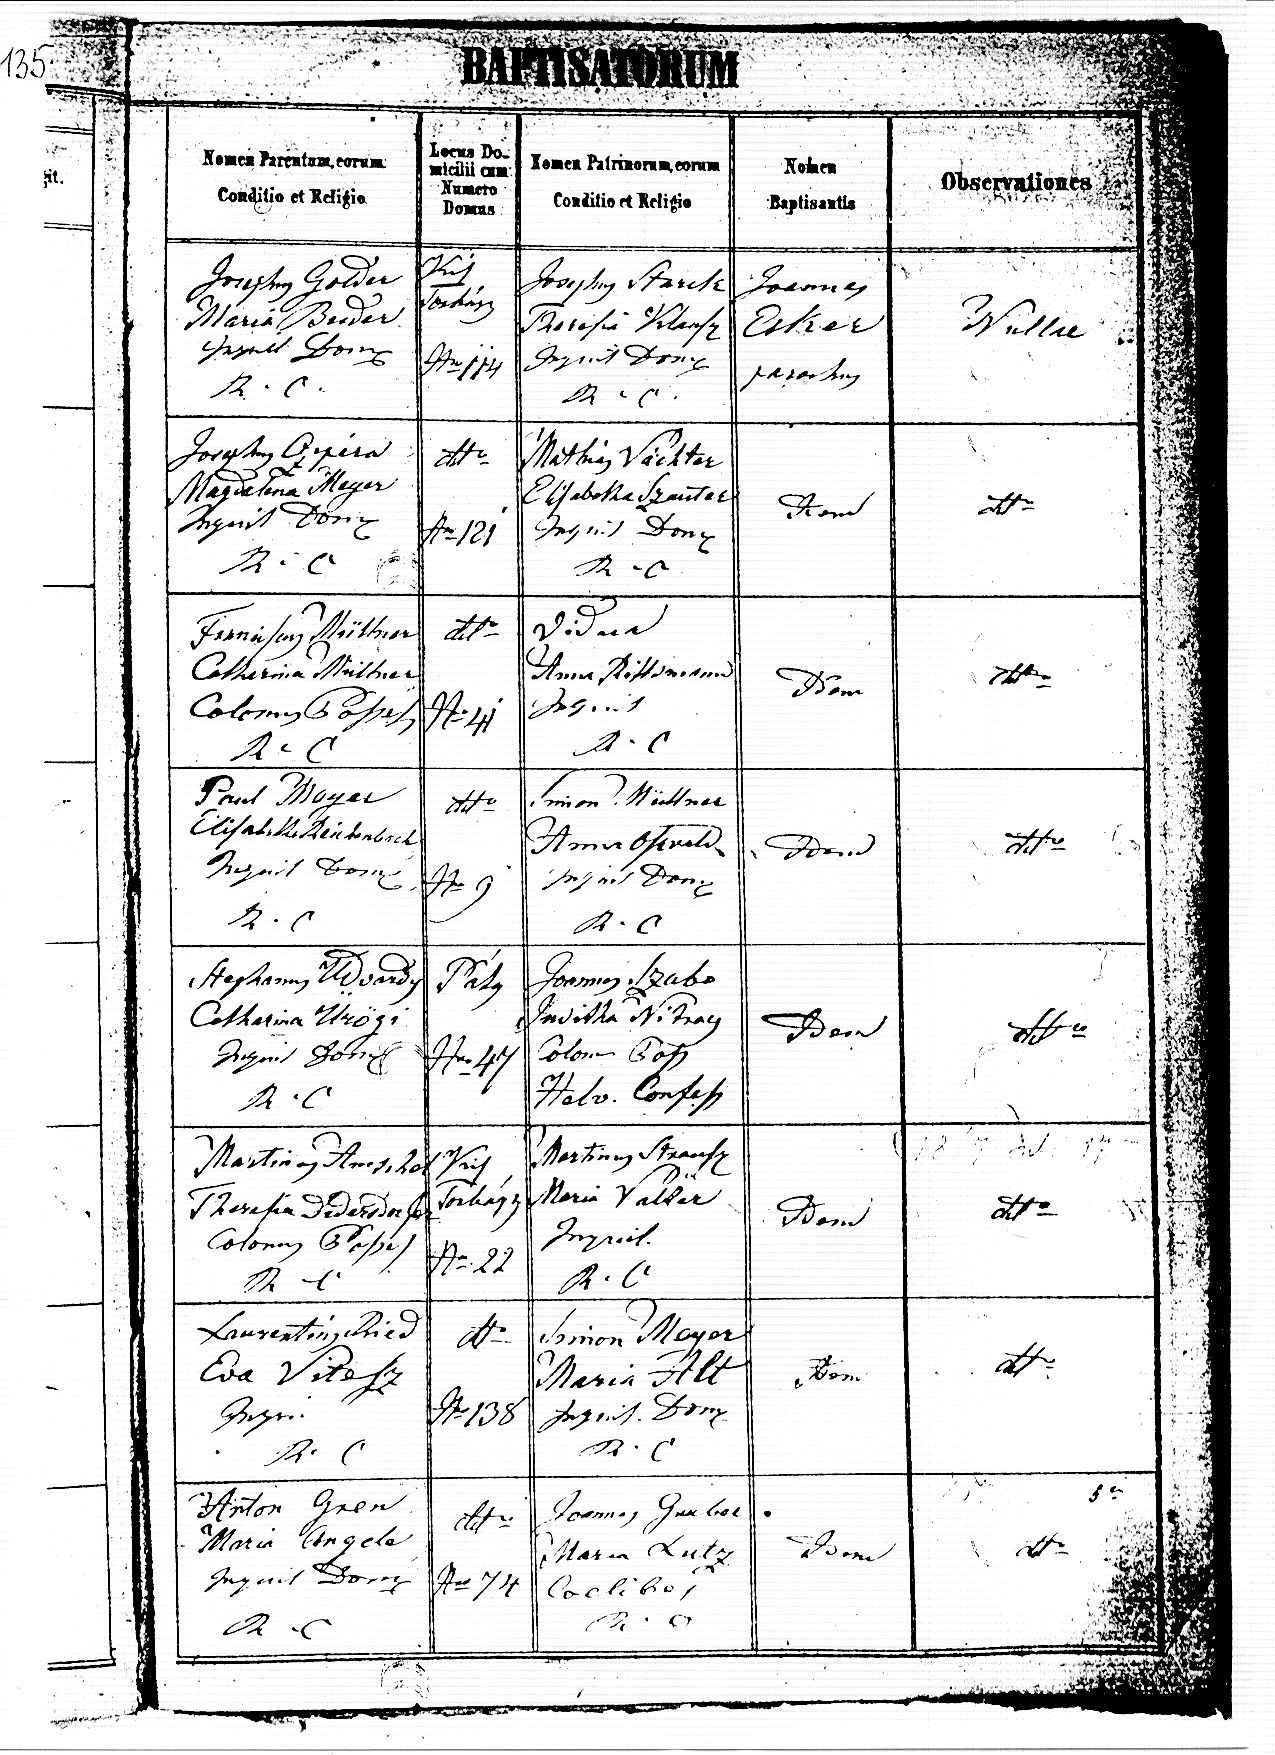 135
BAPTISATORUM
git.
Nomen Parentum, eorum
Conditio et Religio
Locus Do-
micilii cum
Numero
Domus
Nomen Patrinorum, eorum
Conditio et Religio
Nomen
Baptisantis
Observationes
Josephus Golder
Maria Beider
Inquil Domz
R. C.
Kis
Torbágy
Nro 114
Josephus Starck
Theresia Klausz
Inquil Domz
R. C.
Joannes
Esker
parochus
Nullae
Josephus
Magdalena Mayer
Inquil Domz
R. C
dtto
Nro 121
Mathias Vächter
Elisabetha Szauter
Inquil Domz
R. C
Idem
dtto
Franciscus Müllner
Catharina Müllner
Colonus Posses
R. C
dtto
Nro 41
Vidua
Anna
Inquil
R. C
Idem
dtto
Paul Mayer
Elisabetha Reichenbach
Inquil Domz
R. C
dtto
Nro 9
Simon Müllner
Anna Osvald
Inquil Domz
R. C
Idem
dtto
Stephanus Udvardy
Catharina Ürögi
Inquil Domz
R. C
Páty
Nro 47
Joannes Szabo
Juditha Nitray
Colon Poss
Helv. Confess
Idem
dtto
Martinus
Theresia Didersdorfer
Colonus Posses
R. C
Kis
Torbágy
Nro 22
Martinus Strausz
Maria Valter
Inquil.
R. C
Idem
dtto
Laurentius Ried
Eva Vitesz
Inqui
R. C
dtto
Nro 138
Simon Mayer
Maria Alt
Inquil. Domz
R. C
Idem
dtto
Anton Gren
Maria Angele
Inquil Domz
R. C
dtto
Nro 74
Joannes Gruber
Maria Lutz
Coelibes
R. C
Idem
dtto